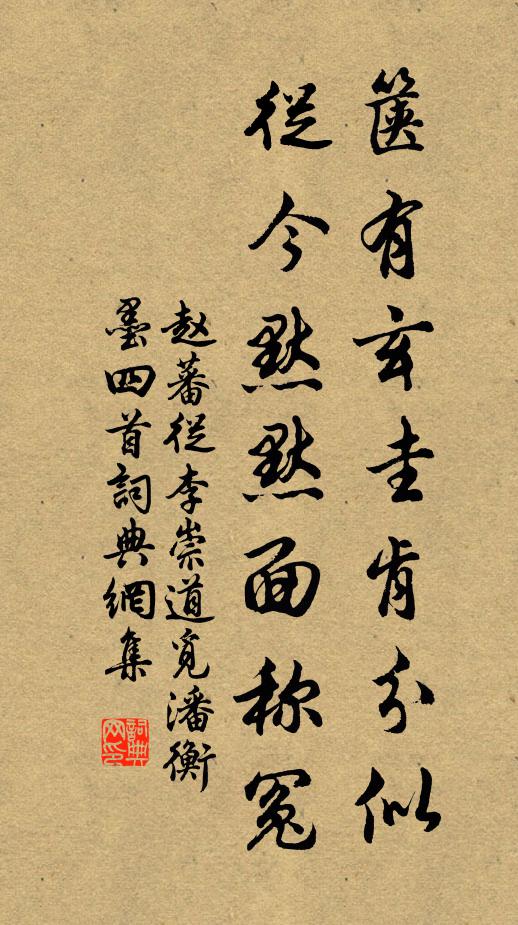 箧有玄圭肯分似
從今默默面称冤
赵蕃從李崇道覓潘衡
墨四首詞典網集
詞典網印